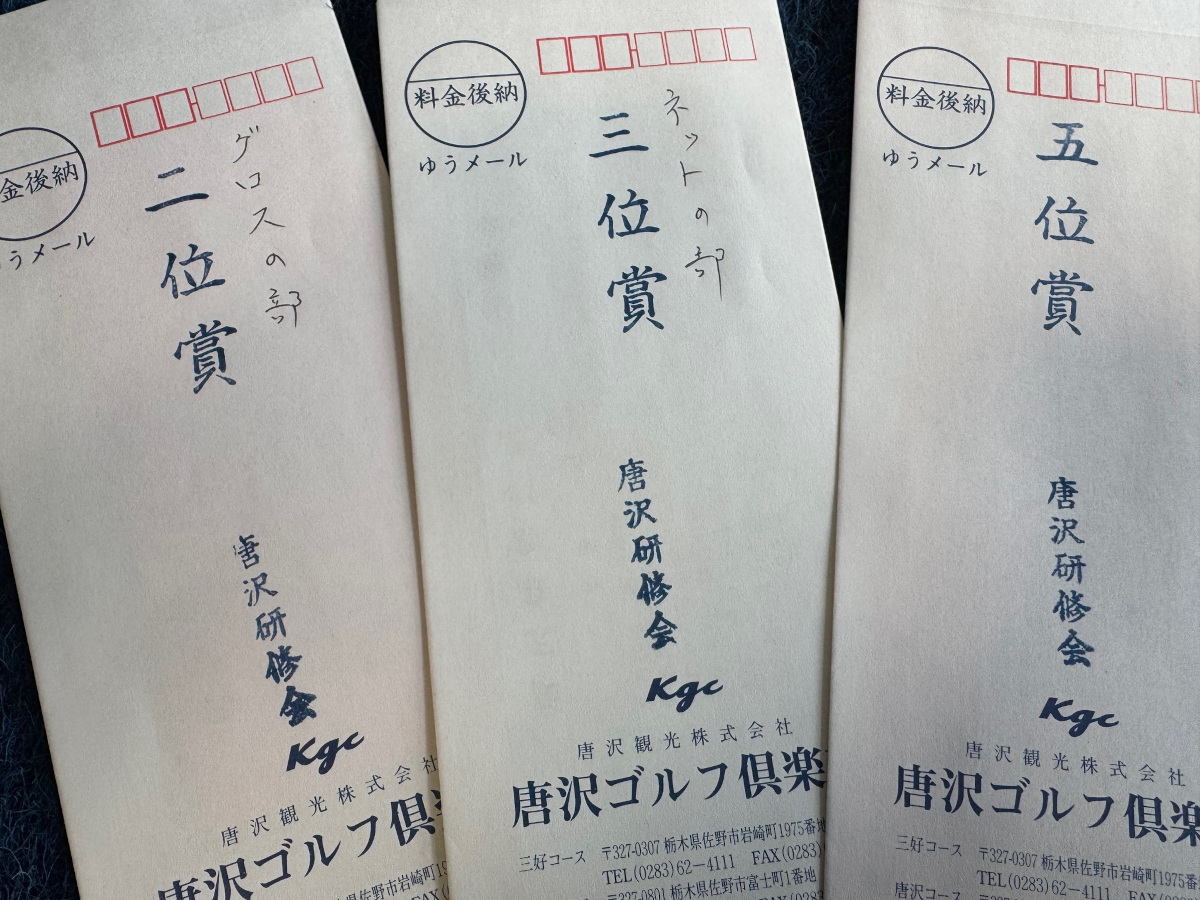 金後納
うメール
グロスの部
二位賞
唐沢研修会
Kgc
唐沢観光株式会社
唐沢ゴルフ倶
栃木県佐野市岩崎町19
料金後納
ゆうメール
ネットの部
三位賞
唐沢研修会
Kgc
唐沢観光株式会社
唐沢ゴルフ倶楽
三好コース 〒327-0307 栃木県佐野市岩崎町1975番地
TEL(0283)62-4111 FAX(0283)
〒327-0801 栃木県佐野市富士町1番地
料金後納
ゆうメール
五位賞
唐沢研修会
Kgc
唐沢観光株式会社
唐沢ゴルフ倶楽
三好コース 〒327-0307 栃木県佐野市岩崎町1975番
TEL(0283)62-4111 FAX(0
唐沢コース